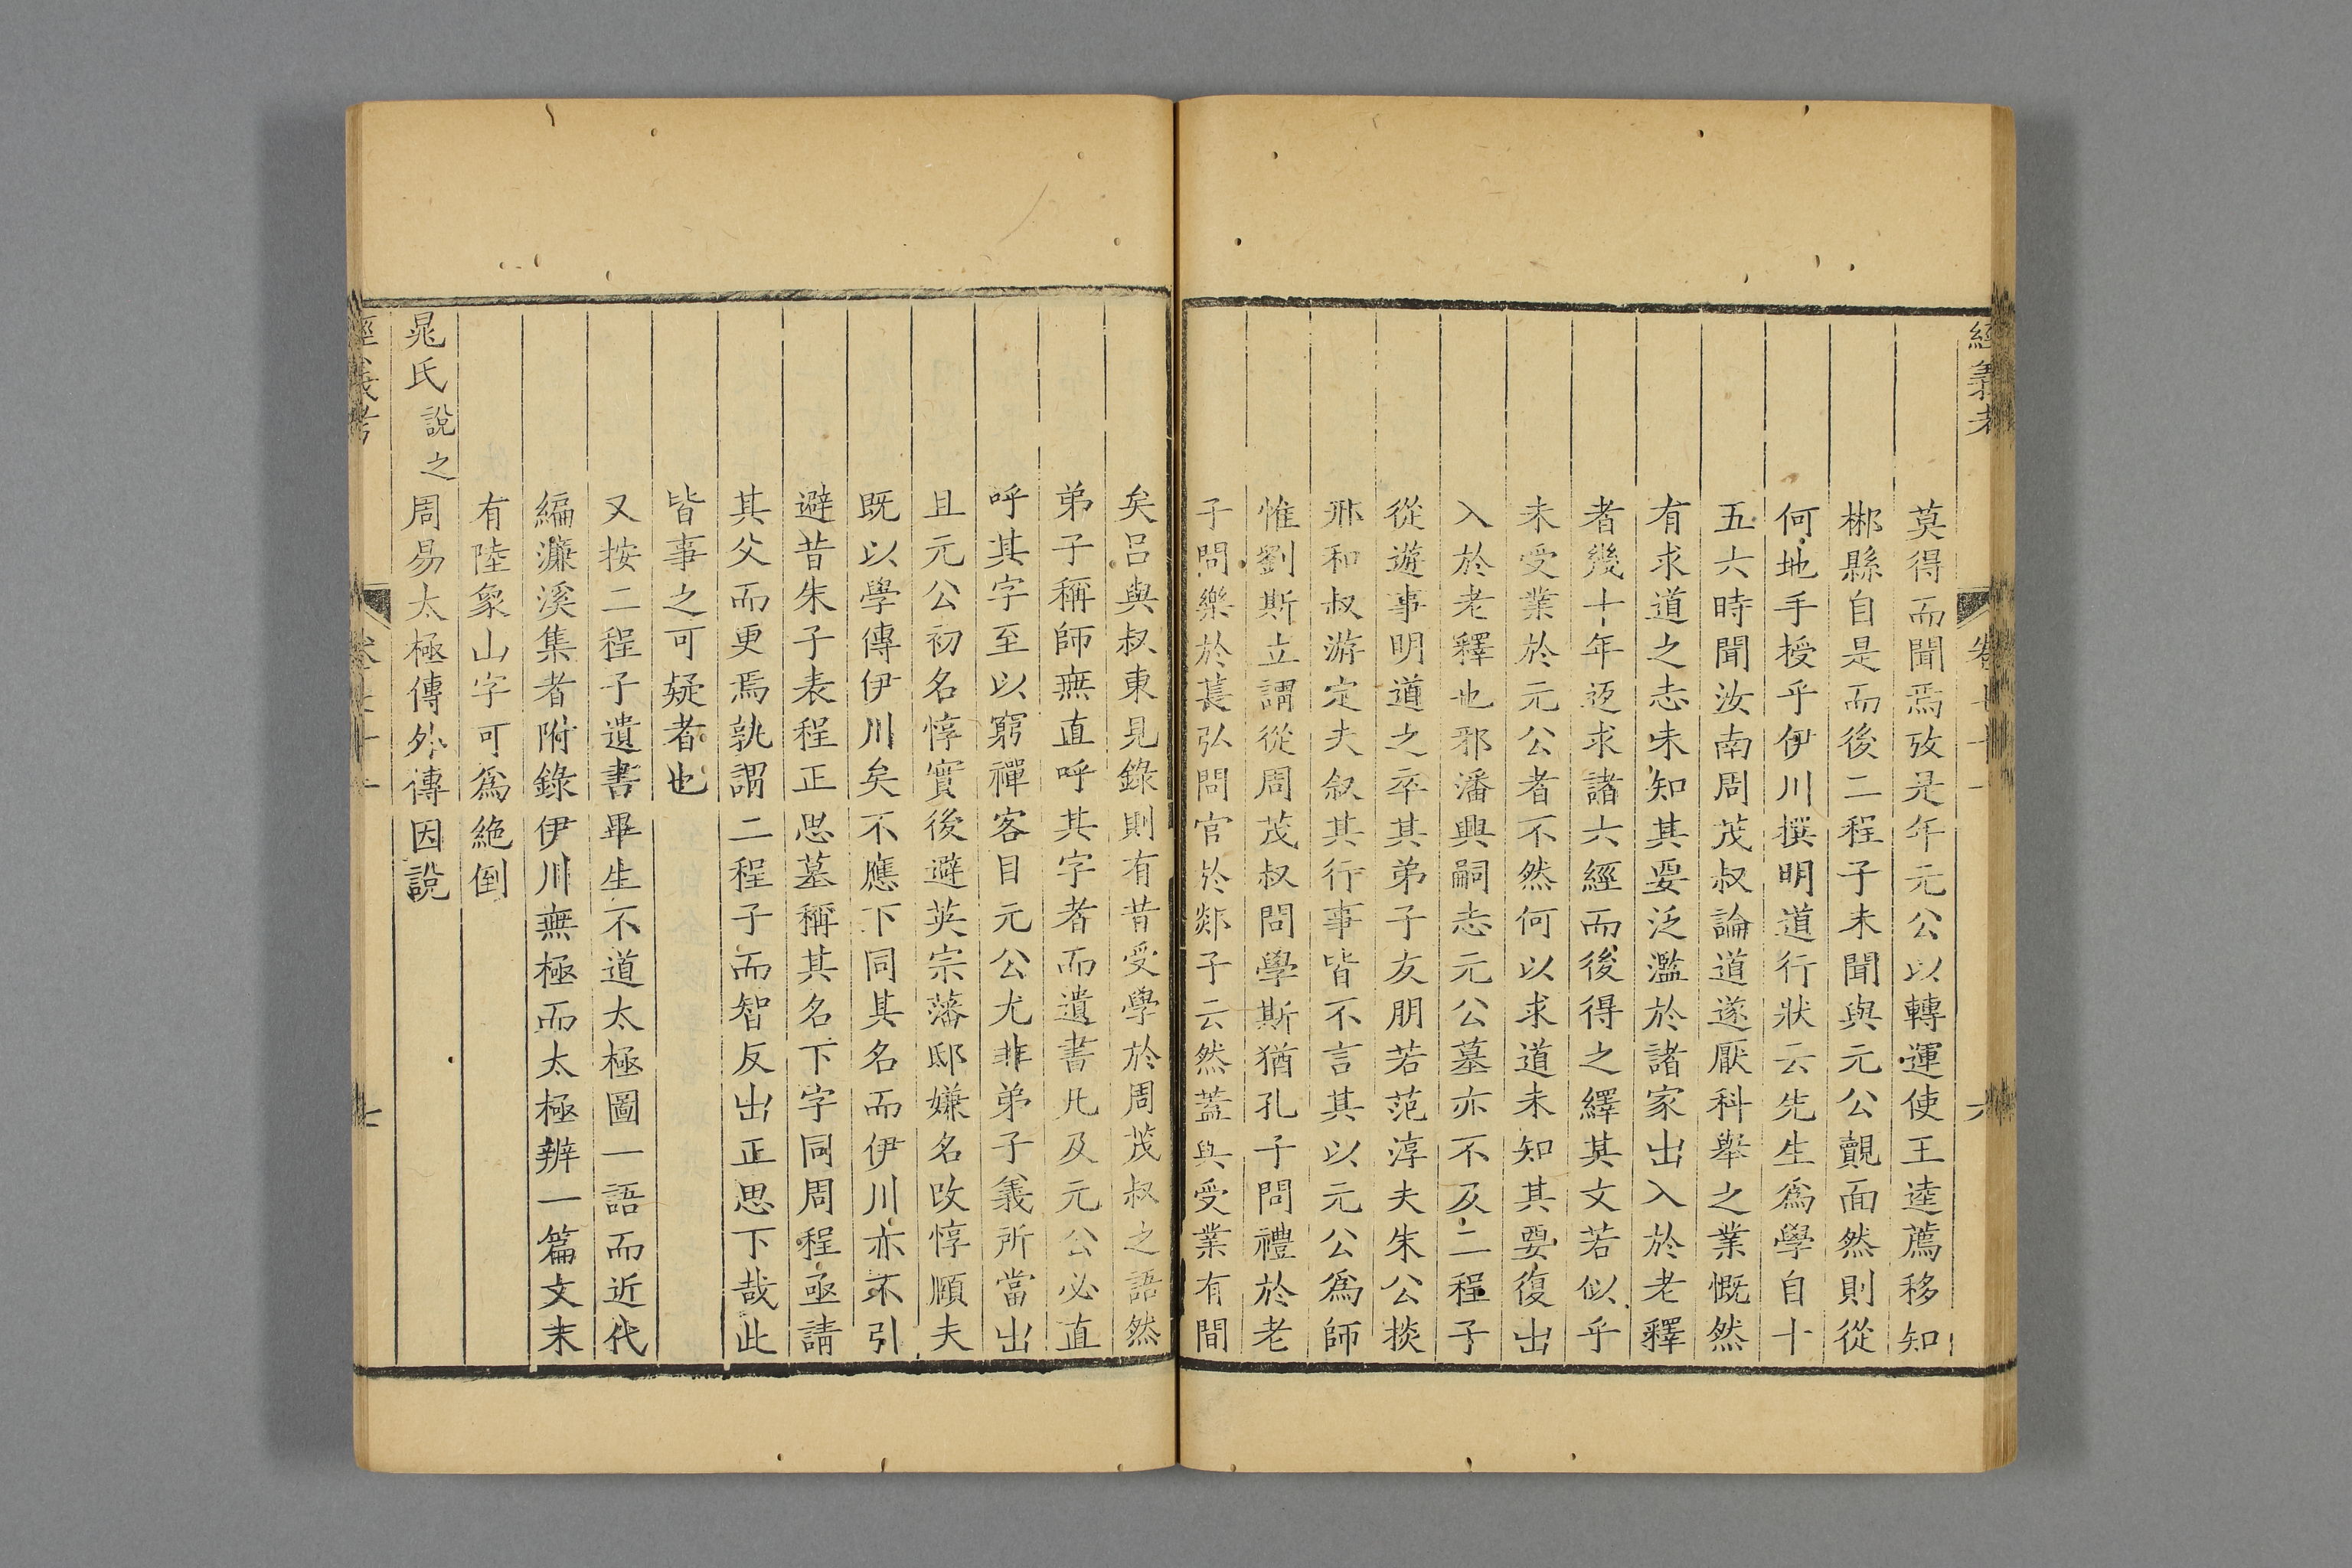 經義考
卷七十一
六
莫得而聞焉攷是年元公以轉運使王逵薦移知
郴縣自是而後二程子未聞與元公覿面然則從
何地手授乎伊川撰明道行狀云先生爲學自十
五六時聞汝南周茂叔論道遂厭科舉之業慨然
有求道之志未知其要泛濫於諸家出入於老釋
者幾十年返求諸六經而後得之繹其文若似乎
未受業於元公者不然何以求道未知其要復出
入於老釋也邪潘興嗣志元公墓亦不及二程子
從遊事明道之卒其弟子友朋若范淳夫朱公掞
邢和叔游定夫叙其行事皆不言其以元公爲師
惟劉斯立謂從周茂叔問學斯猶孔子問禮於老
子問樂於萇弘問官於郯子云然蓋與受業有間
矣呂與叔東見錄則有昔受學於周茂叔之語然
弟子稱師無直呼其字者而遺書凡及元公必直
呼其字至以窮禪客目元公尤非弟子義所當出
且元公初名惇實後避英宗藩邸嫌名改惇頤夫
既以學傳伊川矣不應下同其名而伊川亦不引
避昔朱子表程正思墓稱其名下字同周程亟請
其父而更焉孰謂二程子而智反出正思下哉此
皆事之可疑者也
又按二程子遺書畢生不道太極圖一語而近代
編濂溪集者附錄伊川無極而太極辨一篇文末
有陸象山字可爲絶倒
晁氏說之周易太極傳外傳因說
經義考
卷七十一
七